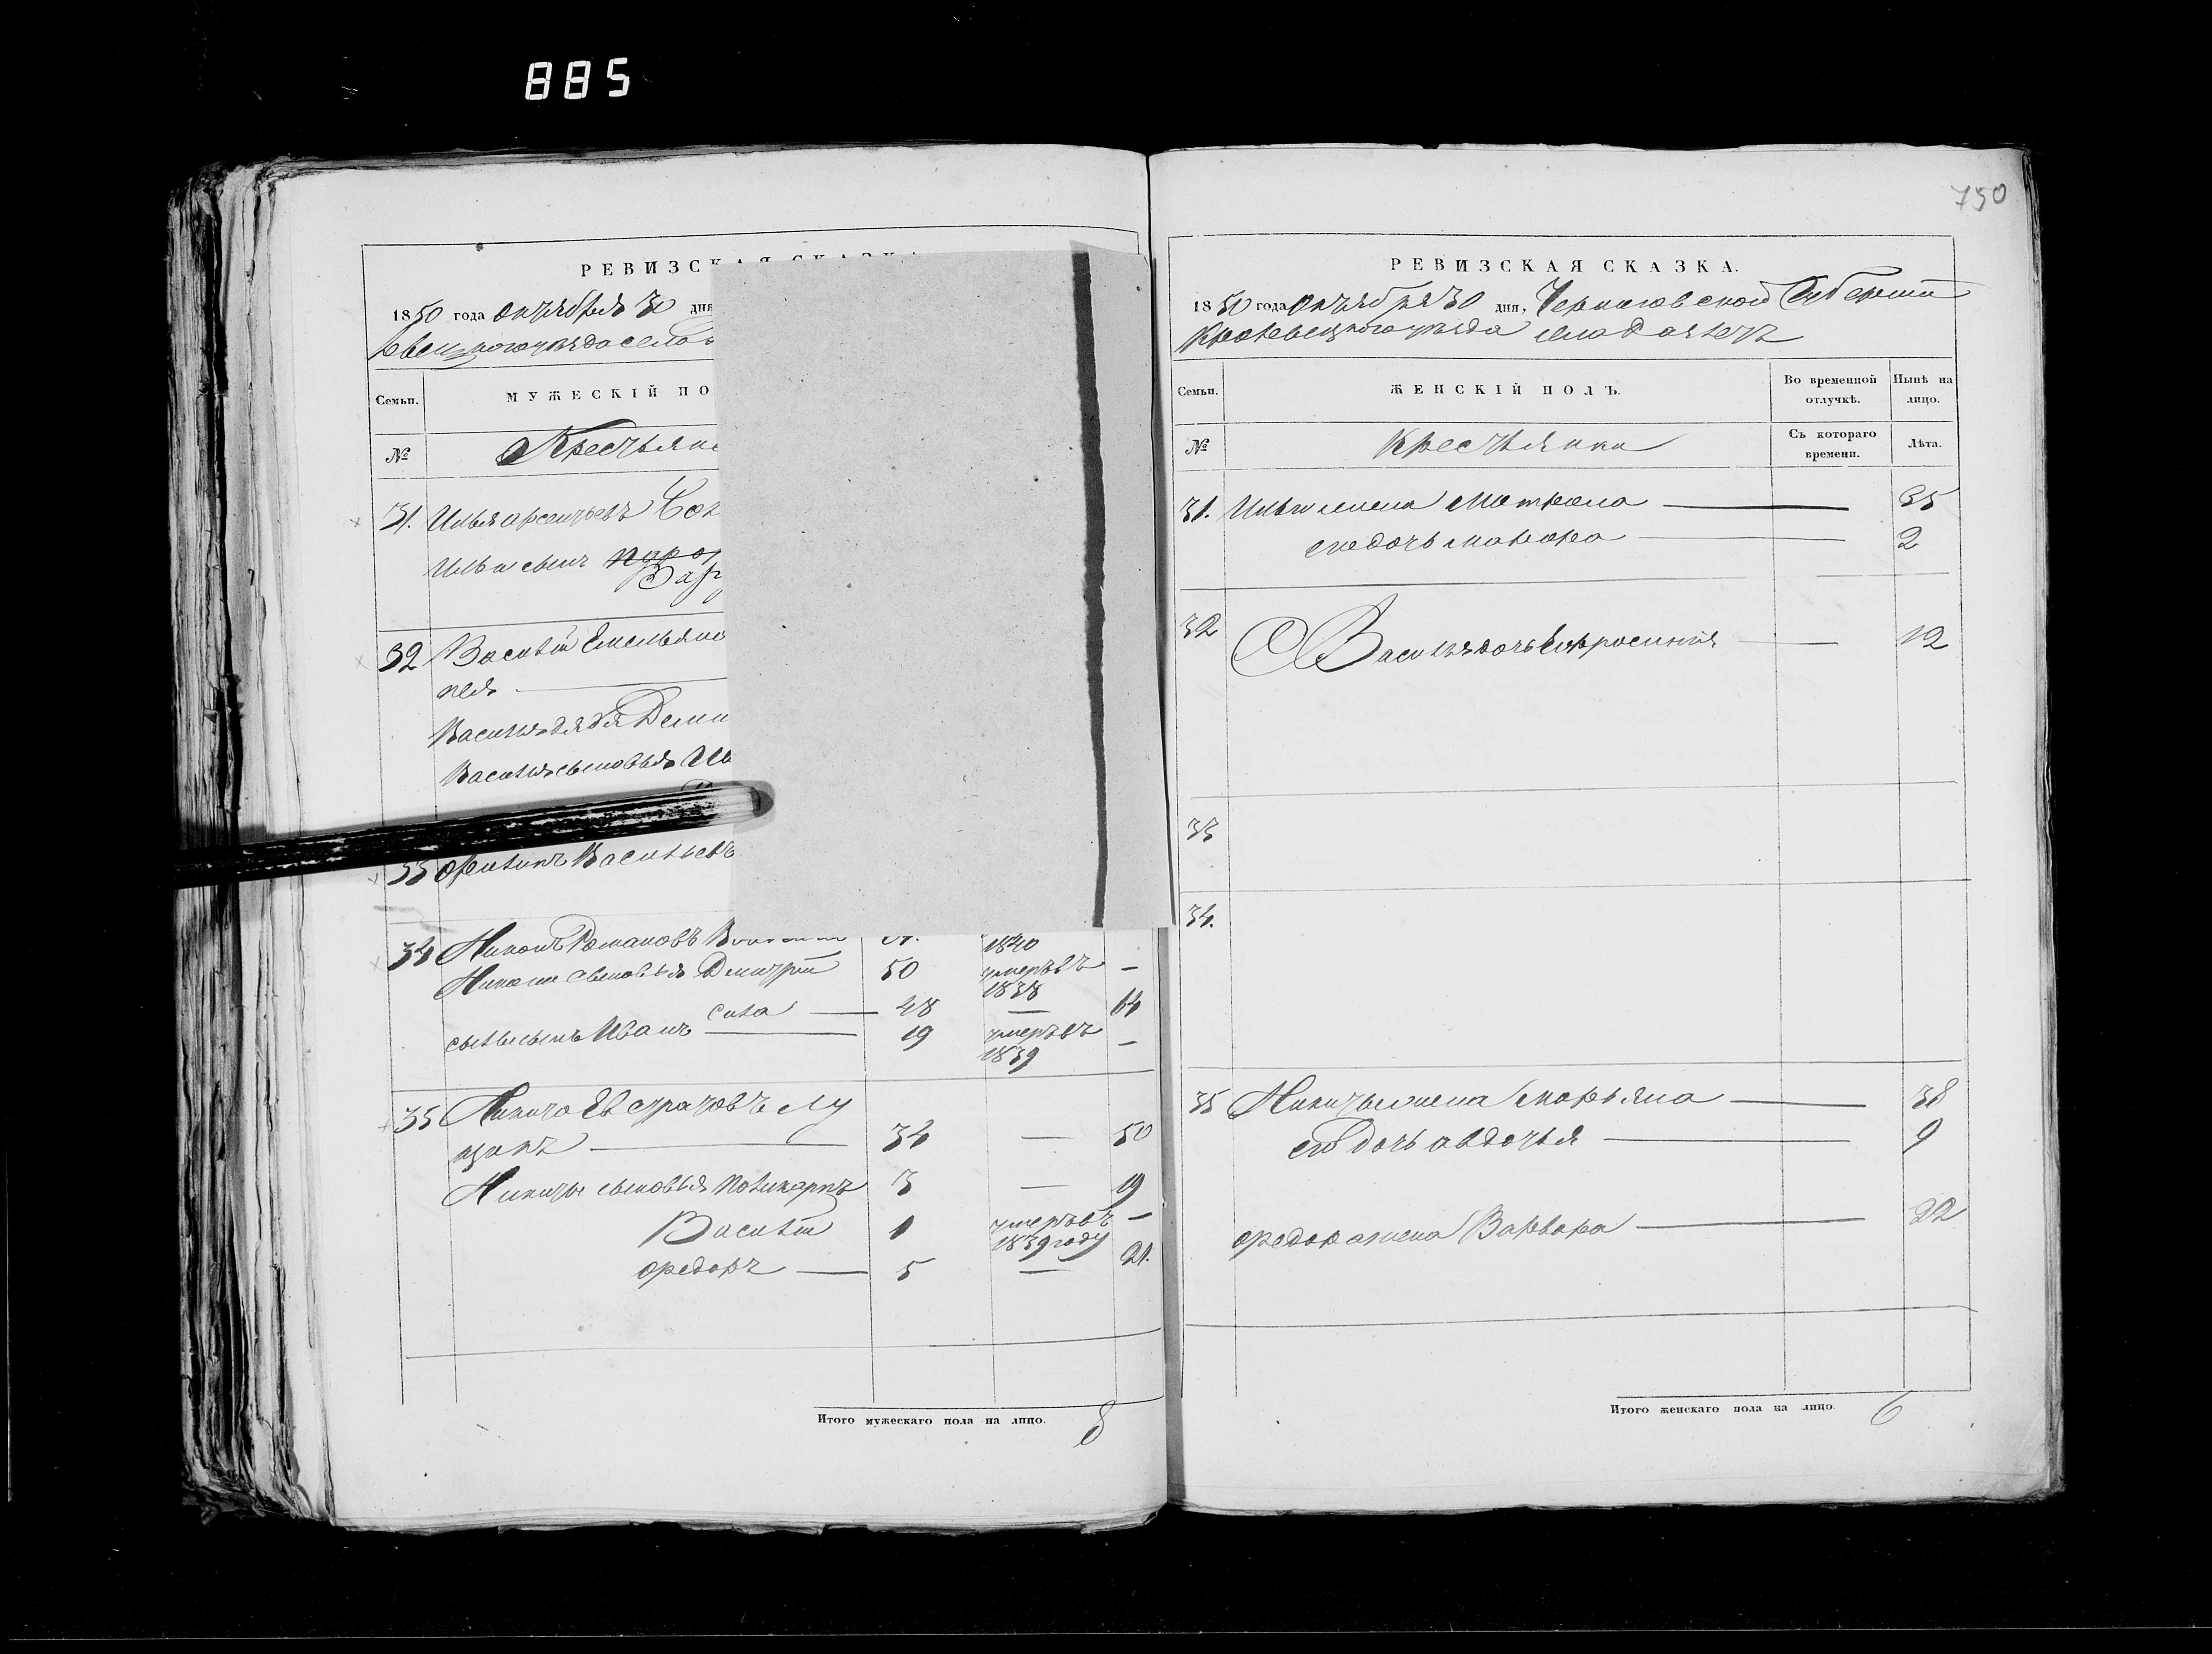 885
РЕВИЗСК
1850 года октября 30 дня
Семьи.
МУЖЕСКІЙ ПО
№
Крестьяне
31. Илья Арсентьевъ
Ильи сынъ
32 Василій Емельяно
Василія дядя Деми
Василія сыновья
33 Филипъ Васильевъ
34 Никонъ Романовъ
1840
Никона сыновья Дмитрій 50 умеръ въ —
1838
Сила — 48 — 64
Силы сынъ Иванъ — 19 умеръ въ —
1839
35 Никита Евстратовъ Лу
цикъ — 34 — 50
Никиты сыновья Поликарпъ 3 — 19
Василій 1 умеръ въ —
1839 году
Федоръ — 5 — 21.
Итого мужескаго пола на лицо. 8
750
РЕВИЗСКАЯ СКАЗКА.
1850 года октября 30 дня, Черниговской Губерніи
Кролевецкаго уѣзда села
Семьи.
ЖЕНСКІЙ ПОЛЪ.
Во временной отлучкѣ.
Нынѣ на лицо.
№
Крестьянки
Съ котораго времени.
Лѣта.
31. Ильи жена Матрона — 35
его дочь — 2
32 Василія дочь Ефросинія — 12
33
34.
35 Никиты жена Марьяна — 38
его дочь Авдотья — 9
Федора жена Варвара — 22
Итого женскаго пола на лицо. 6